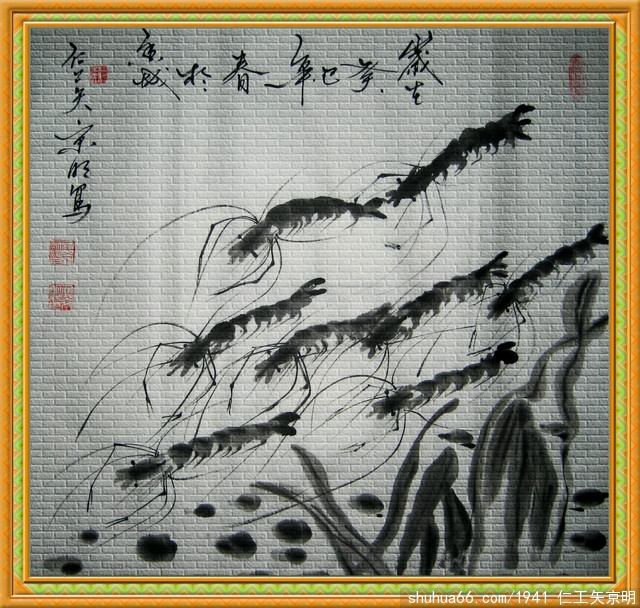 歲在癸巳年春於城
仁工矢京明寫
shuhua66.com/1941 仁工矢京明